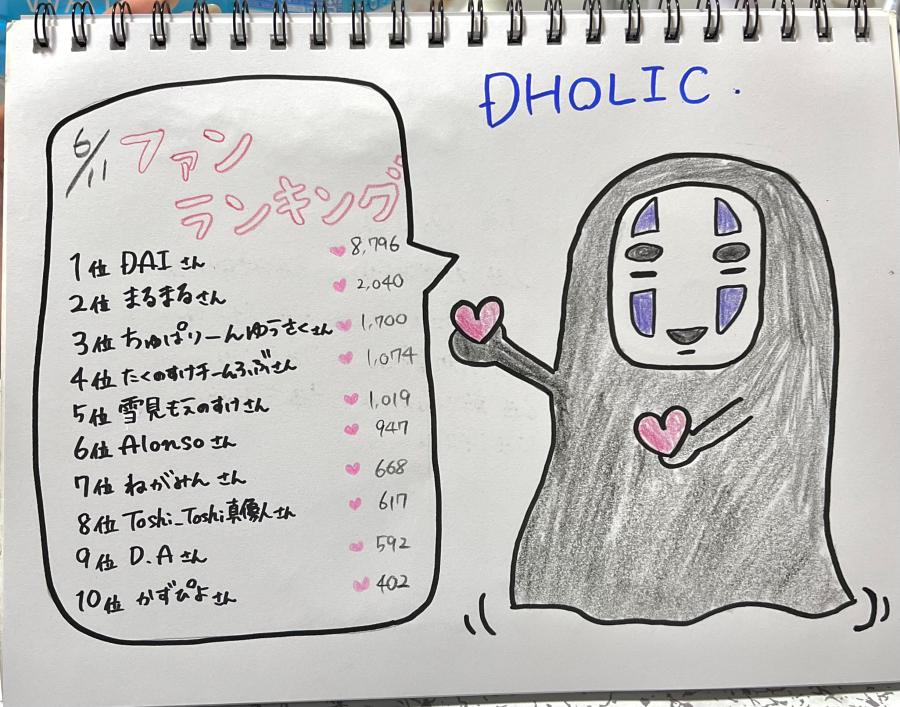 ĐHOLIC.
6/11 ファン
ランキング
1位 ĐAIさん ♥8,796
2位 まるまるさん ♥2,040
3位 ちゅぱりーんゆうさくさん ♥1,700
4位 たくのすけチームふぶさん ♥1,074
5位 雪見もえのすけさん ♥1,019
6位 Alonsoさん ♥947
7位 ねがみんさん ♥668
8位 Toshi_Toshi真像人さん ♥617
9位 D.Aさん ♥592
10位 かずぴよさん ♥402